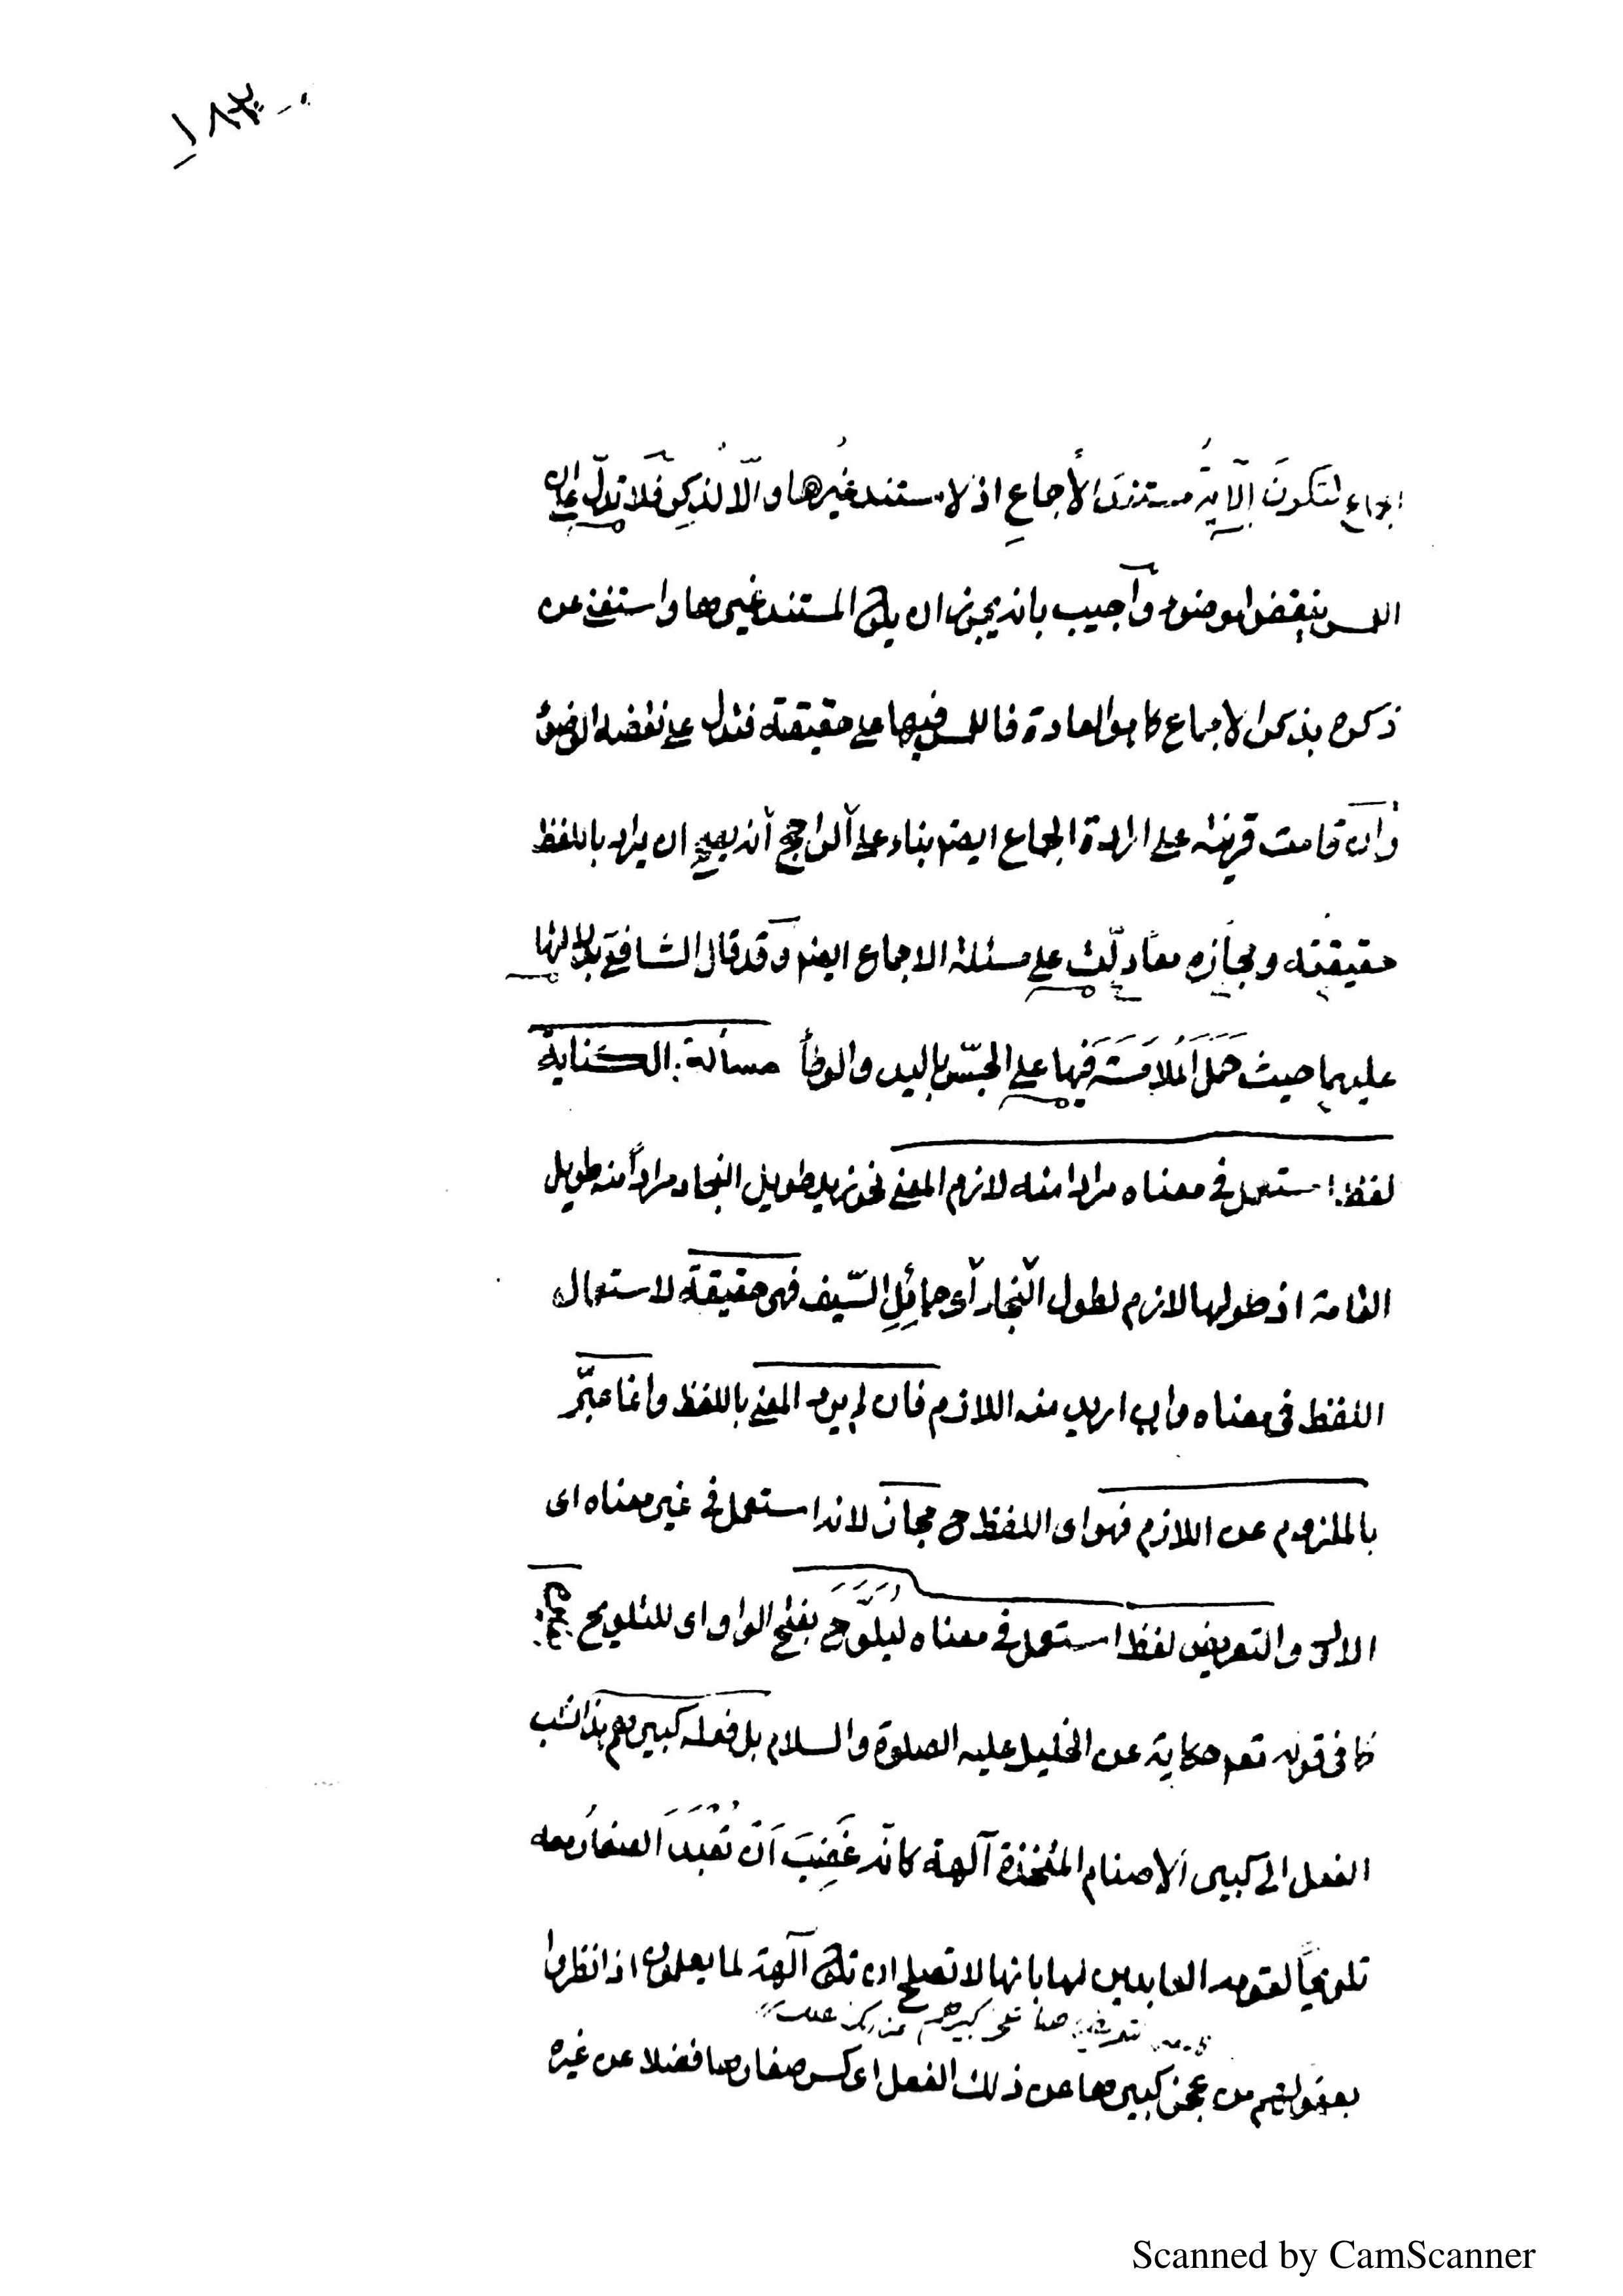 ١٨٣
إجماع لتكونَ الآيةُ مستندَ الأجماعِ اذ لا مستند غيُرها و الّا لذكِر فلا تدلّ على ان
اللمس ينقض الوضوء وأجيب بانه يجوز ان يكون المستند غيرها واستغنى عن
ذكره بذكر الاجماع كما هو العادة فاللمس فيها على حقيقته فتدل على نقضه الوضوء
وان قامت قرينة على ارادة الجماع ايضا بناء على الراجح أنه يصح ان يراد باللفظ
حقيقته ومجازه معًا دلّت على مسئلة الاجماع ايضا وقد قال الشافعي بدلالتها
عليهما حيث حَمَلَ المُلَامَسَةَ فيها على الجسّ باليد والوطأ مسألة: الكناية
لفظ استعمل في معناه مرادا منه لازم المعنى نحو زيد طويل النجاد مراداً منه طويل
القامة اذ طولها لازم لطول النّجاد أى حمائِلِ السّيف فهى حقيقة لاستعمال
اللفظ فى معناه وان اريد منه اللازم فان لم يرد المعنى باللفظ وانما عبّر
بالملزوم عن اللازم فهو اى اللفظ ح مجاز لانه استعمل في غير معناه اى
الاول والتعريض لفظ استعمل في معناه ليُلَوَّحَ بفتح الواو اى للتلويح بغيره
كما فى قوله تعم حكاية عن الخليل عليه الصلوة والسلام بل فعله كبيرهم هذا نسب
الفعل الى كبير الأصنام المتخذة آلهة كانّه غَضِبَ اَن تُعْبَدَ الصغارُ معه
تلويحاً لقومه العابدين لها بانها لا تصلح ان تكون آلهة لما يعلمون اذا نظروا
بعقولهم من عجز كبيرها عن ذلك الفعل اى كسر صغارها فضلا عن غيره
Scanned by CamScanner